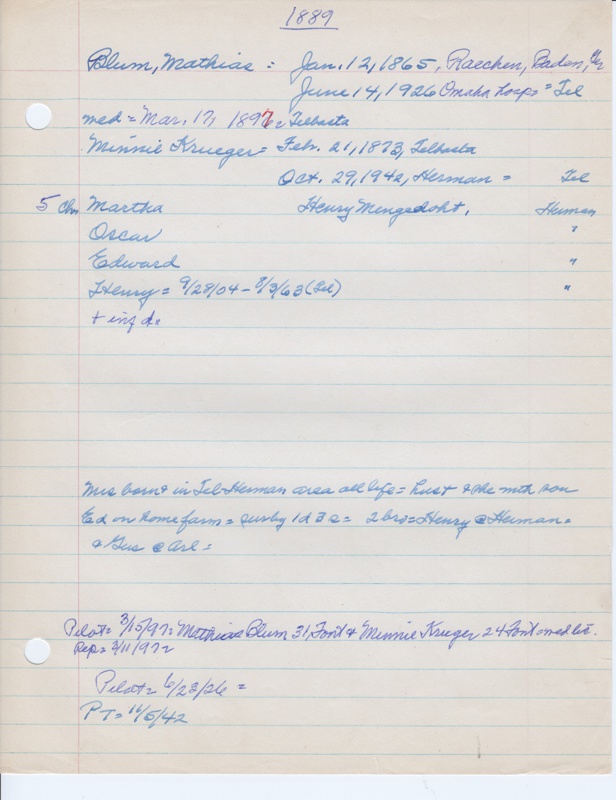 1889
Blum, Mathias = Jan. 12, 1865, Raechen, Baden, Ger
June 14, 1926 Omaha hosp = Tel
med = Mar. 17, 1897 = Telbasta
Minnie Krueger = Feb. 21, 1873, Telbasta
Oct. 29, 1942, Herman = Tel
5 Chn Martha Henry Mengedoht, Herman
Oscar "
Edward "
Henry = 9/28/04 - 8/3/63 (Tel) "
+ inf d.
Mrs born & in Tel-Herman area all life = hust & she mth son
Ed on home farm = surby 1 d 3 s = 2 bro = Henry @ Herman =
& Gus @ Arl =
Pilot = 3/15/97 = Mathias Blum 31 Font & Minnie Krueger 24 Font = med lic.
Rep = 3/11/97 =
Pilot = 6/23/26 =
PT = 11/5/42